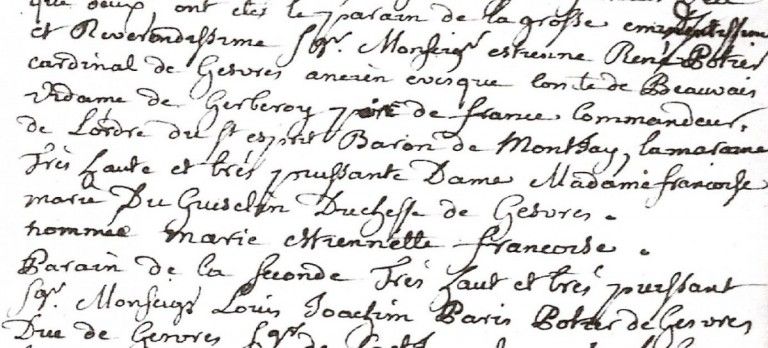 que deux, ont etes le parain de la grosse eminentissime
et Reverendissime Sgr. Monseigr estienne René Potier
cardinal de Gesvres ancien evesque Comte de Beauvais
Vidame de Gerberoy pair de france commandeur
de L'ordre du st esprit Baron de Monthay, la maraine
Très haute et très puissante Dame Madame francoise
marie Du Guesclin Duchesse de Gesvres.
nommée marie etiennette francoise.
Parain de la seconde Très haut et très puissant
sgr. Monseigr Louis Joachim Paris Potier de Gesvres
Duc de Gesvres sgr de